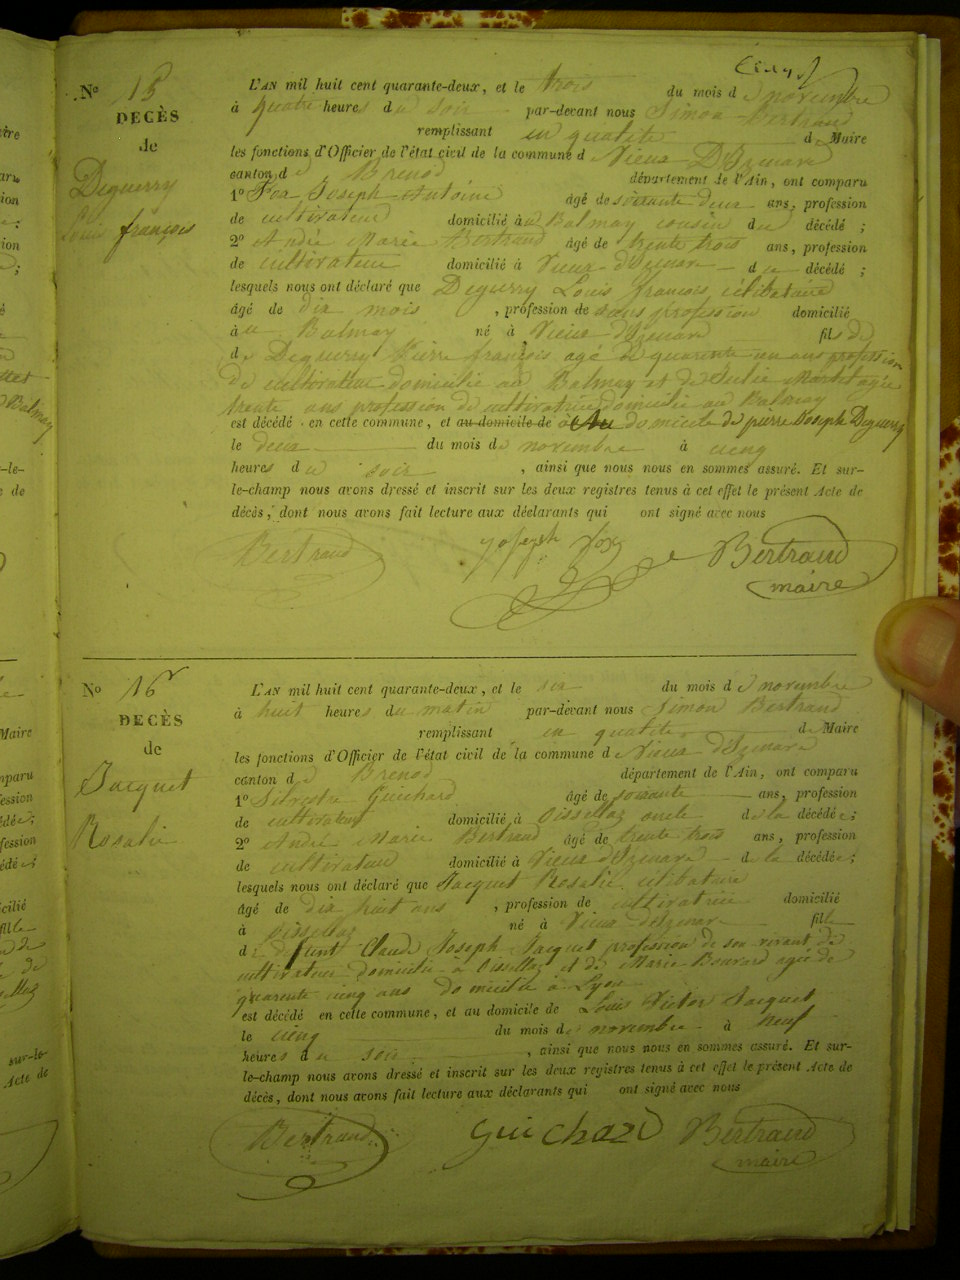 No 15
DECÈS
de
Deguerry
Louis françois
L'AN mil huit cent quarante-deux, et le trois du mois de novembre
à quatre heures du soir par-devant nous Simon Bertrand
remplissant en qualité de Maire
les fonctions d'Officier de l'état civil de la commune de Vieux D'Izenave
canton de Brenod département de l'Ain, ont comparu
1o Fox Joseph Antoine âgé de soixante deux ans, profession
de cultivateur domicilié au Balmay cousin du décédé ;
2o André Marie Bertrand âgé de trente trois ans, profession
de cultivateur domicilié à Vieux-d'Izenave du décédé ;
lesquels nous ont déclaré que Deguerry Louis françois célibataire
âgé de dix mois , profession de sans profession domicilié
au Balmay né à Vieux d'Izenave fils de
de Deguerry Pierre françois agé de quarente un ans profession
de cultivateur domicilié au Balmay et de Julie Martel agée
trente ans profession de cultivatrice domicilié au Balmay
est décédé en cette commune, et au domicile de domicile de pierre Joseph Deguerry
le deux du mois de novembre à cinq
heures du soir , ainsi que nous nous en sommes assuré. Et sur-
le-champ nous avons dressé et inscrit sur les deux registres tenus à cet effet le présent Acte de
décès, dont nous avons fait lecture aux déclarants qui ont signé avec nous
Bertrand joseph fox Bertrand
maire
No 16
DECÈS
de
Jacquet
Rosalie
L'AN mil huit cent quarante-deux, et le six du mois de novembre
à huit heures du matin par-devant nous Simon Bertrand
remplissant en qualité de Maire
les fonctions d'Officier de l'état civil de la commune de Vieux d'Izenave
canton de Brenod département de l'Ain, ont comparu
1o Silvestre Guichard âgé de soixante ans, profession
de cultivateur domicilié à Oissellaz oncle de la décédée ;
2o André Marie Bertrand âgé de trente trois ans, profession
de cultivateur domicilié à Vieux d'Izenave de la décédée ;
lesquels nous ont déclaré que Jacquet Rosalie célibataire
âgé de dix huit ans , profession de cultivatrice domicilié
à Oissellaz né à Vieux d'Izenave fille
de défunt Claude Joseph Jacquet profession de son vivant de
cultivateur domicilié à Oissellaz et de Marie Bonrard agée de
quarente cinq ans domicilié à Lyon
est décédé en cette commune, et au domicile de Louis Victor Jacquet
le cinq du mois de novembre à neuf
heures du soir , ainsi que nous nous en sommes assuré. Et sur-
le-champ nous avons dressé et inscrit sur les deux registres tenus à cet effet le présent Acte de
décès, dont nous avons fait lecture aux déclarants qui ont signé avec nous
Bertrand guichard Bertrand
maire